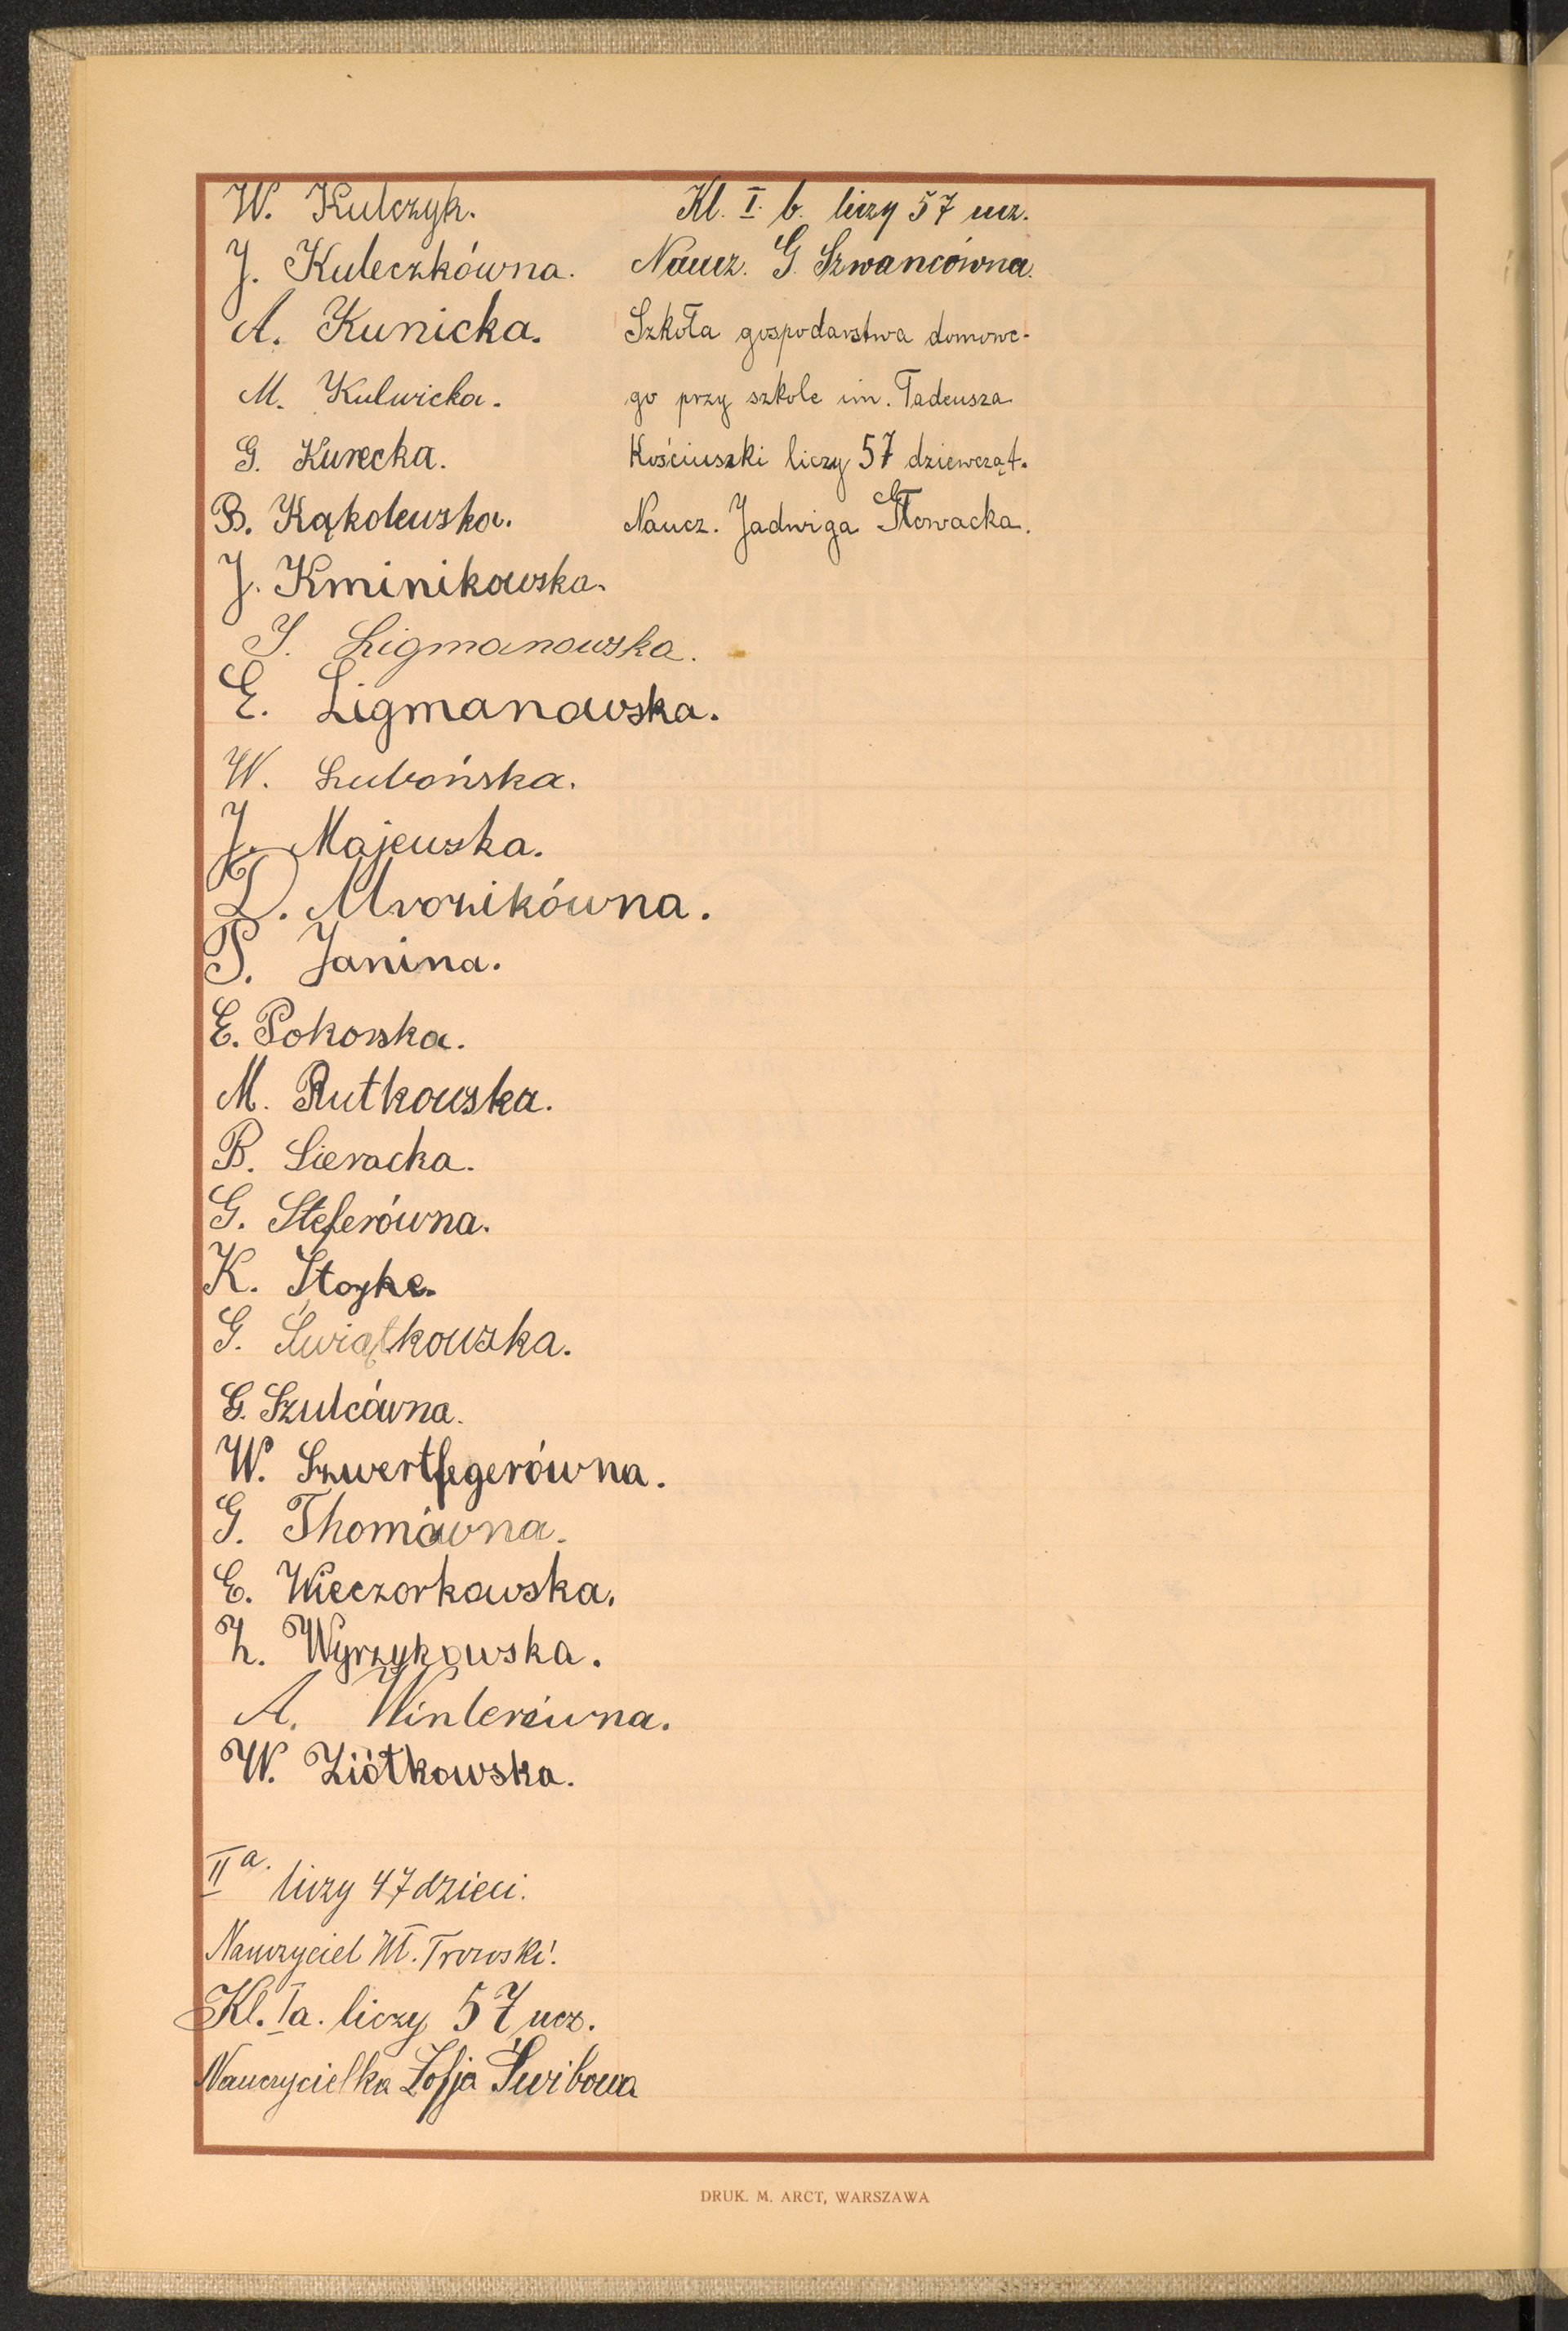 W. Kulczyk.
J. Kuleczkówna.
A. Kunicka.
M. Kulwicka.
G. Kurecka.
B. Kąkolewska.
J. Kminikowska.
I. Ligmanowska.
E. Ligmanowska.
W. Lubońska.
J. Majewska.
D. Mrozikówna.
P. Janina.
E. Pokorska.
M. Rutkowska.
B. Sieracka.
G. Steferówna.
K. Stoyke.
G. Świątkowska.
G. Szulcówna.
W. Szwertfegerówna.
G. Thomówna.
E. Wieczorkowska.
Z. Wyrzykowska.
A. Winterówna.
W. Ziółkowska.
II a. liczy 47 dzieci.
Nauczyciel Wł.
Kl. Ia. liczy 57 ucz.
Nauczycielka Zofja Świbowa
Kl. I. b. liczy 57 ucz.
Naucz. G. Szwancówna.
Szkoła gospodarstwa domowe-
go przy szkole im. Tadeusza
Kościuszki liczy 57 dziewcząt.
Naucz. Jadwiga Nowacka.
DRUK. M. ARCT, WARSZAWA